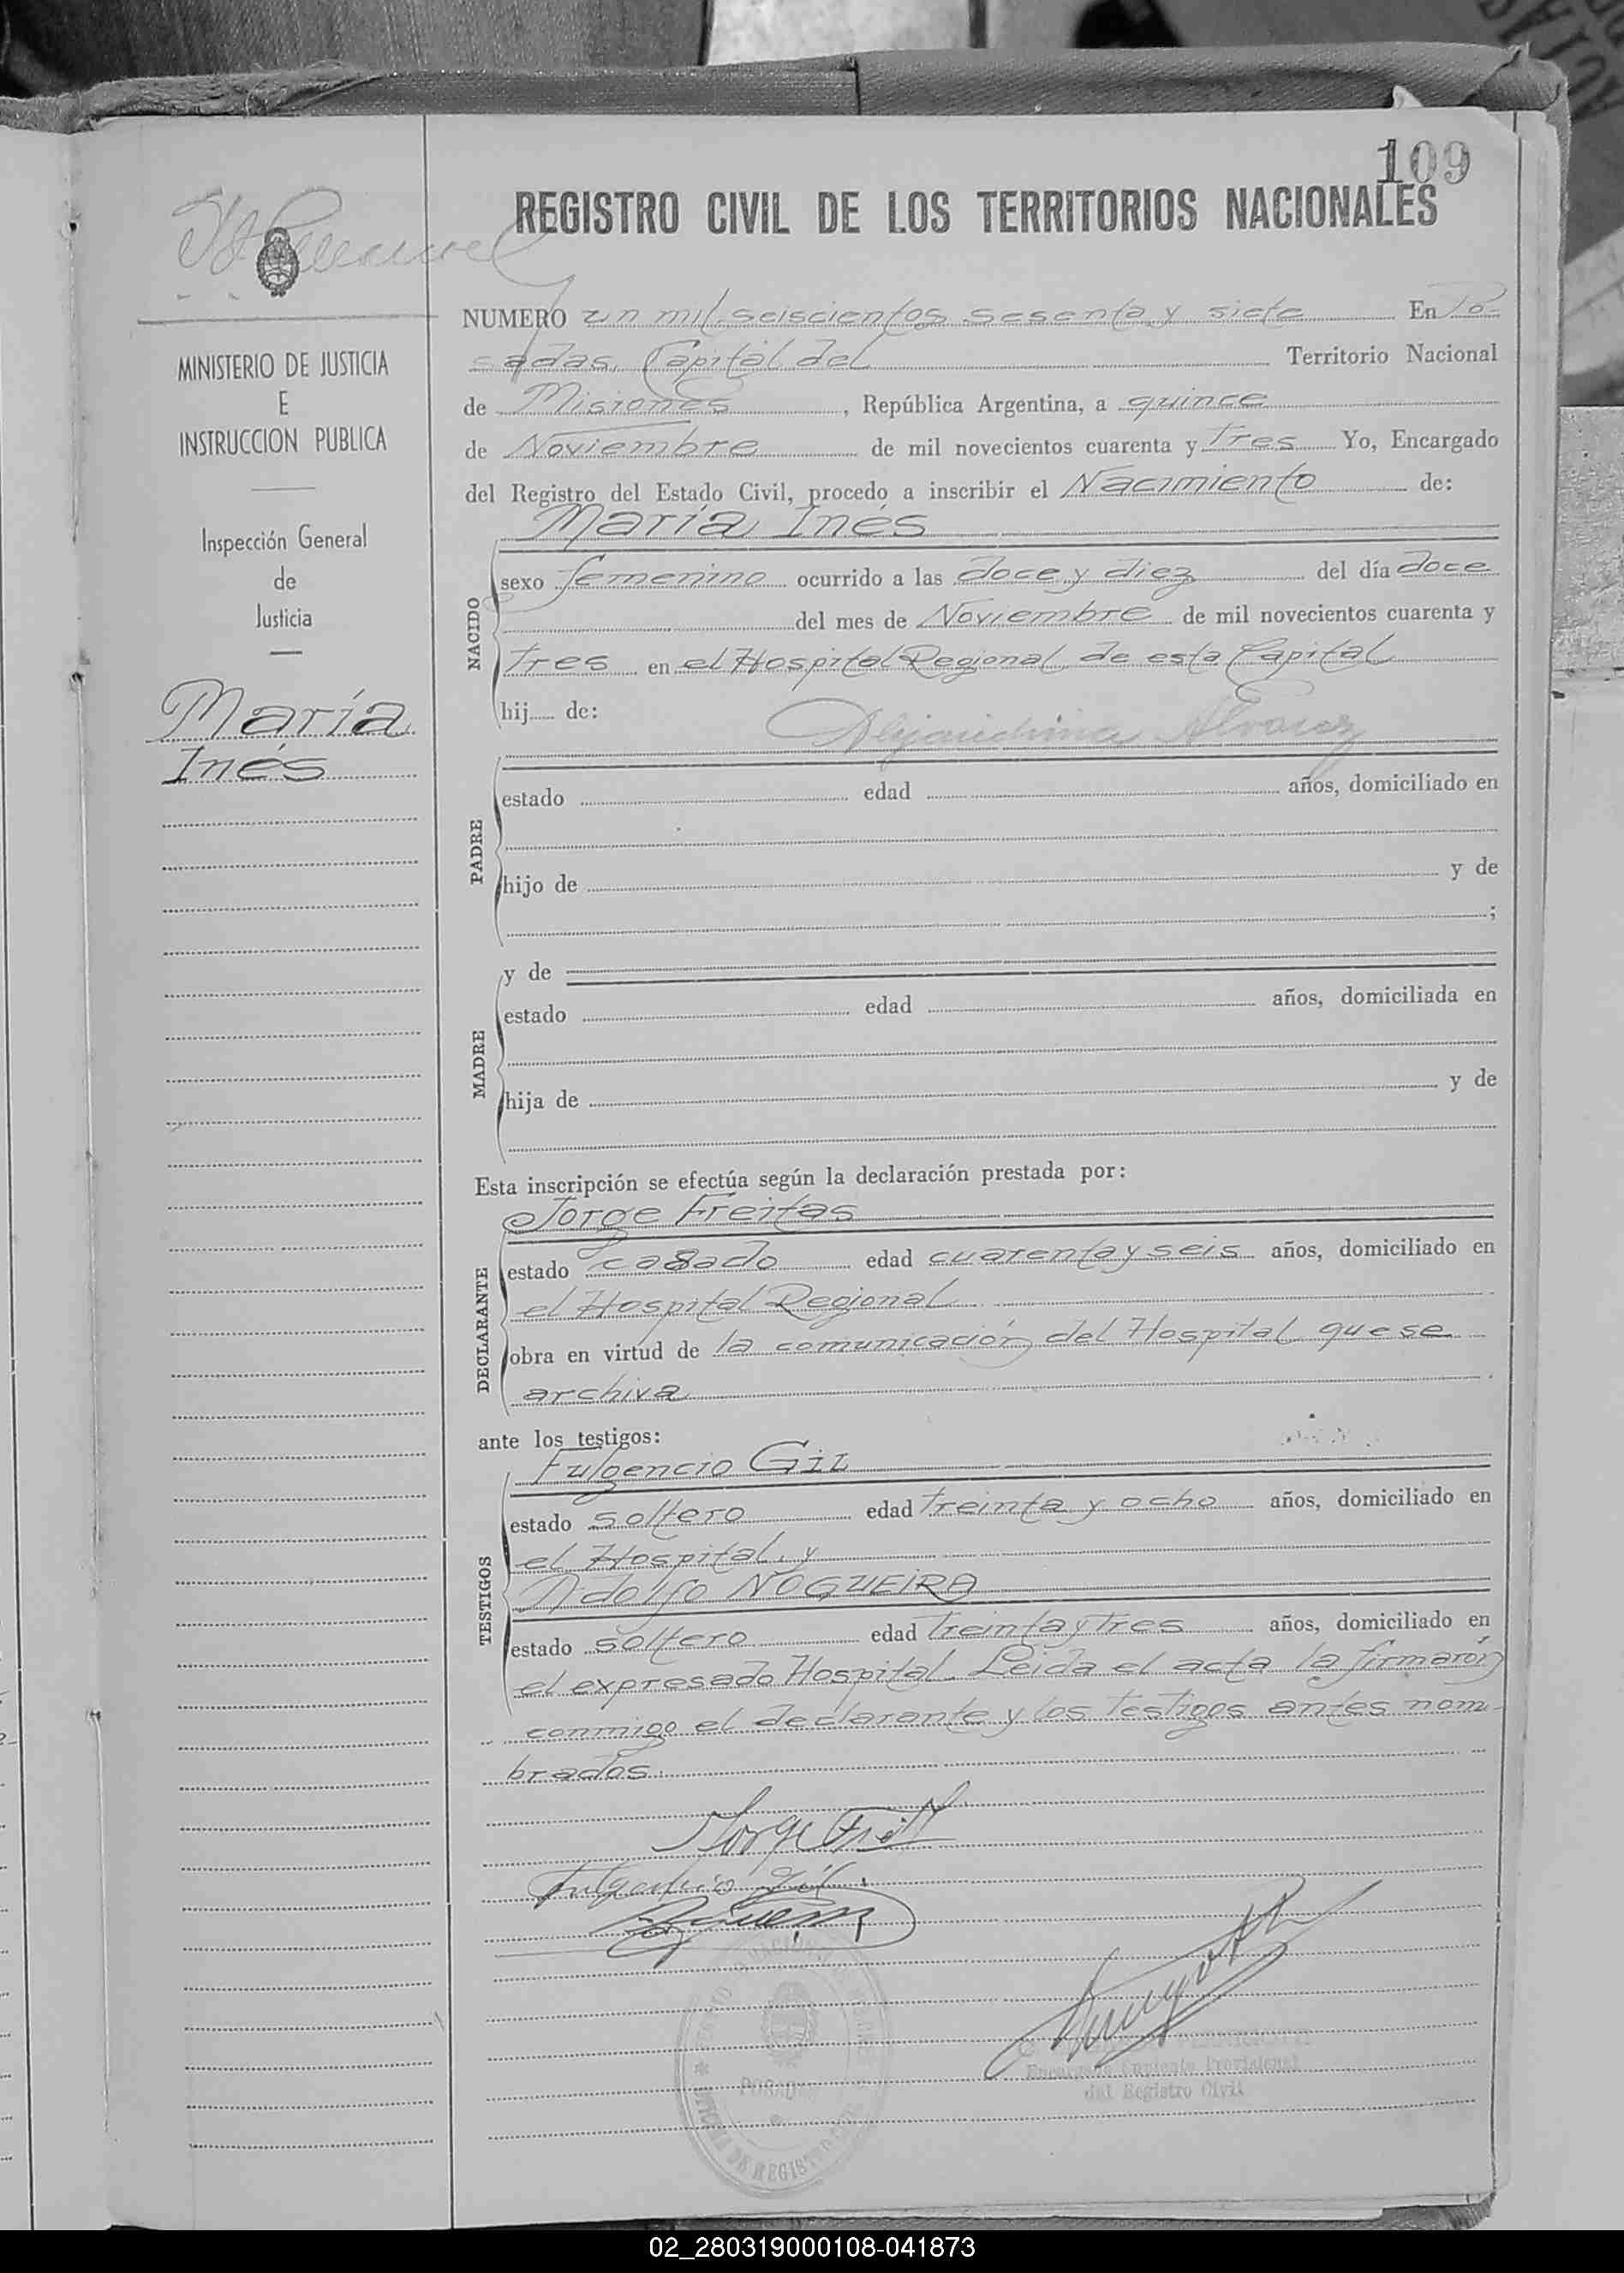 109
REGISTRO CIVIL DE LOS TERRITORIOS NACIONALES
MINISTERIO DE JUSTICIA
E
INSTRUCCION PUBLICA
Inspección General
de
Justicia
María
Inés
NUMERO un mil seiscientos sesenta y siete En Po-
sadas, Capital del Territorio Nacional
de Misiones, República Argentina, a quince
de Noviembre de mil novecientos cuarenta y tres Yo, Encargado
del Registro del Estado Civil, procedo a inscribir el Nacimiento de:
María Inés
NACIDO
sexo femenino ocurrido a las doce y diez del día doce
del mes de Noviembre de mil novecientos cuarenta y
tres en el Hospital Regional de esta Capital
hij de:
Alejandrina Alvarez
PADRE
estado edad años, domiciliado en
hijo de y de
;
y de
MADRE
estado edad años, domiciliada en
hija de y de
Esta inscripción se efectúa según la declaración prestada por:
Jorge Freitas
DECLARANTE
estado casado edad cuarenta y seis años, domiciliado en
el Hospital Regional
obra en virtud de la comunicación del Hospital que se
archiva
ante los testigos:
Fulgencio Gil
TESTIGOS
estado soltero edad treinta y ocho años, domiciliado en
el Hospital, y
Adolfo NOGUEIRA
estado soltero edad treinta y tres años, domiciliado en
el expresado Hospital. Leida el acta la firmarón
conmigo el declarante y los testigos antes nom-
brados.
Jorge Freitas
Fulgencio Gil
POSADAS
Encargado Suplente Provisional
del Registro Civil
02_280319000108-041873